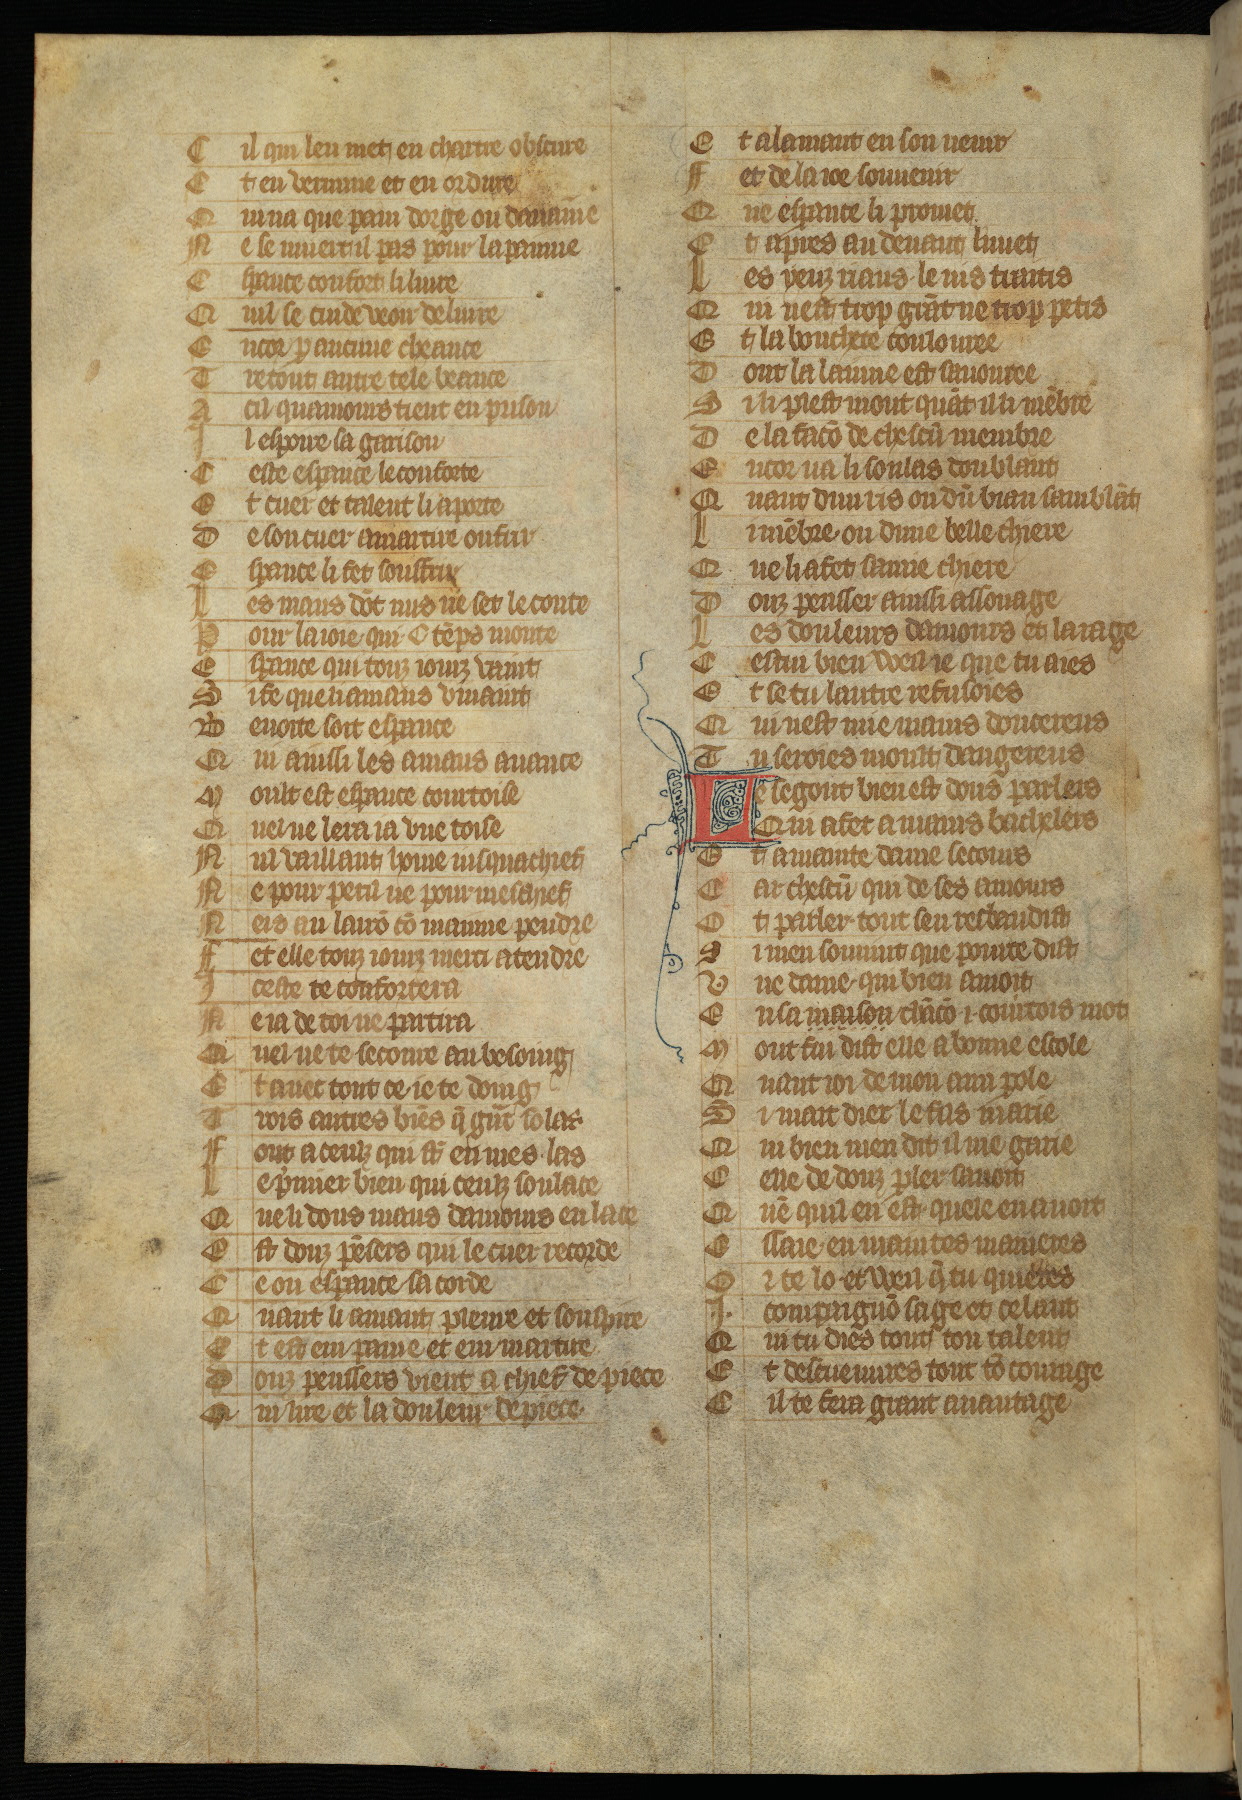 C il qui len met en chartre obscure
E t en vermine et en ordure
Q ui na que pain dorge ou dauaine
N e se muert il pas pour la painne
E sperance confort li liure
Q uil se cuide veoir deliure
E ncor par aucune cheance
T restout autre tele beance
A cil quamours tient en prison
I l espoire sa garison
C este esperance le conforte
E t cuer et talent li aporte
D e son cuer a martire offrir
E sperance li fet souffrir
L es maus dōt nus ne set le conte
P our la ioie qui C tēps monte
E sperance qui touz iourz vaint
S i fet que li amans vivant
B enoite soit esperance
Q ui ainssi les amans auance
M oult est esperance courtoise
Q uel ne lera ia vne toise
N ul vaillant home iusquachief
N e pour peril ne pour meschief
N eis au larrō cō mainne pendre
F et elle touz iourz merci atendre
I ceste te confortera
N e ia de toi ne partira
Q uel ne te secoure au besoing
E t avec tout ce ie te doing
T rois autres biēs q̄ grāt solas
F ont a ceulz qui sōt en mes las
L e premier bien qui ceulz soulace
Q ue li dous maus damours enlace
E st douz pēsers qui le cuer recorde
C e ou esperance sacorde
Q uant li amant pleure et souspire
E t est em paine et em martire
D ouz penssers vient a chief de piece
Q ui lire et la douleur depiece
E t a lamant en son venir
F et de la ioie souvenir
Q ue esperance li promet
E t apres au deuant li met
L es yeuz rians le nis traitis
Q ui nest trop grāt ne trop petis
E t la bouchete coulouree
D ont la lainne est sauouree
S i li plest mout quāt il li mēbre
D e la facō de chescū membre
E ncor va li soulas doublant
Q uant dun ris ou dū biau samblāt
L i mēbre ou dune belle chiere
Q ue li a fet samie chiere
D ouz pensser ainssi assouage
L es douleurs damours et la rage
C estui bien voeil ie que tu aies
E t se tu lautre refusoies
Q ui nest mie mains doucereus
T u seroies moult dangereus
L e segont bien est dous parlers
Q ui a fet a mains bachelers
E t a mainte dame secours
C ar chescū qui de ses amours
O t parler tout sen resbaudist
S i men souuint que pource dist
V ne dame qui bien amoit
E n sa maison chācō i courtois mot
M out sui dist elle a bonne escole
Q uant ioi de mon ami pole
S i mait diex le fils marie
Q ui bien men dit il me garie
C elle de douz pler sauoit
Q uē quil en est quele en auoit
E ssaie en maintes manieres
O r te lo et voeil q̄ tu quieres
I. compaignō sage et celant
Q ui tu dies tout ton talent
E t descueuures tout tō courage
C il te fera grant auantage